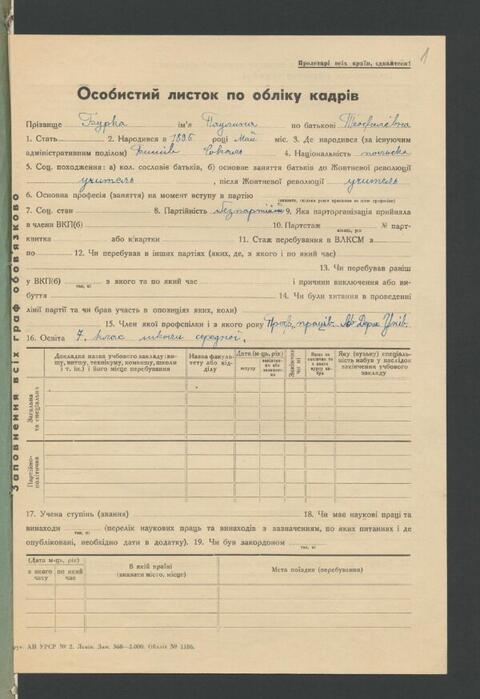 1
Пролетарі всіх країн, єднайтеся!
Особистий листок по обліку кадрів
Прізвище Бурка ім'я Паулина по батькові Теофілівна
1. Стать 2. Народився в 1896 році май міс. 3. Де народився (за існуючим
адміністративним поділом) 4. Національність полька
5. Соц. походження: а) кол. сословіє батьків, б) основне заняття батьків до Жовтневої революції
учитель, після Жовтневої революції учитель
6. Основна професія (заняття) на момент вступу в партію
7. Соц. стан 8. Партійність безпартійн 9. Яка парторганізація прийняла
в члени ВКП(б) 10. Партстаж № парт-
місяць, рік
квитка або к/картки 11. Стаж перебування в ВЛКСМ з
по 12. Чи перебував в інших партіях (яких, де, з якого і по який час)
13. Чи перебував раніш
у ВКП(б) з якого та по який час і причини виключення або ви-
так, ні
буття 14. Чи були хитання в проведенні
лінії партії та чи брав участь в опозиціях яких, коли)
15. Член якої профспілки і з якого року
16. Освіта 7 клас школи середної.
Докладна назва учбового закладу (ви-
шу, втишу, технікуму, комвишу, школи
і т. ін.) і його місце перебування
Назва факуль-
тету або від-
ділу
Дата (м-ць, рік)
вступу
Яку (вузьку) спеціаль-
ність набув у наслідок
закінчення учбового
закладу
Загальна
та спеціальна
Партійно-
політична
17. Учена ступінь (звання) 18. Чи має наукові праці та
винаходи (перелік наукових праць та винаходів з зазначенням, по яких питаннях і де
так, ні
опубліковані, необхідно дати в додатку). 19. Чи був закордоном
так, ні
(Дата м-ць, рік)
з якого часу
по який час
В якій країні
(вказати місто, місце)
Мета поїздки (перебування)
Заповнення всіх граф обов'язково
АН УРСР № 2. Львів. Зам. 360—3.000. Обліт № 1186.